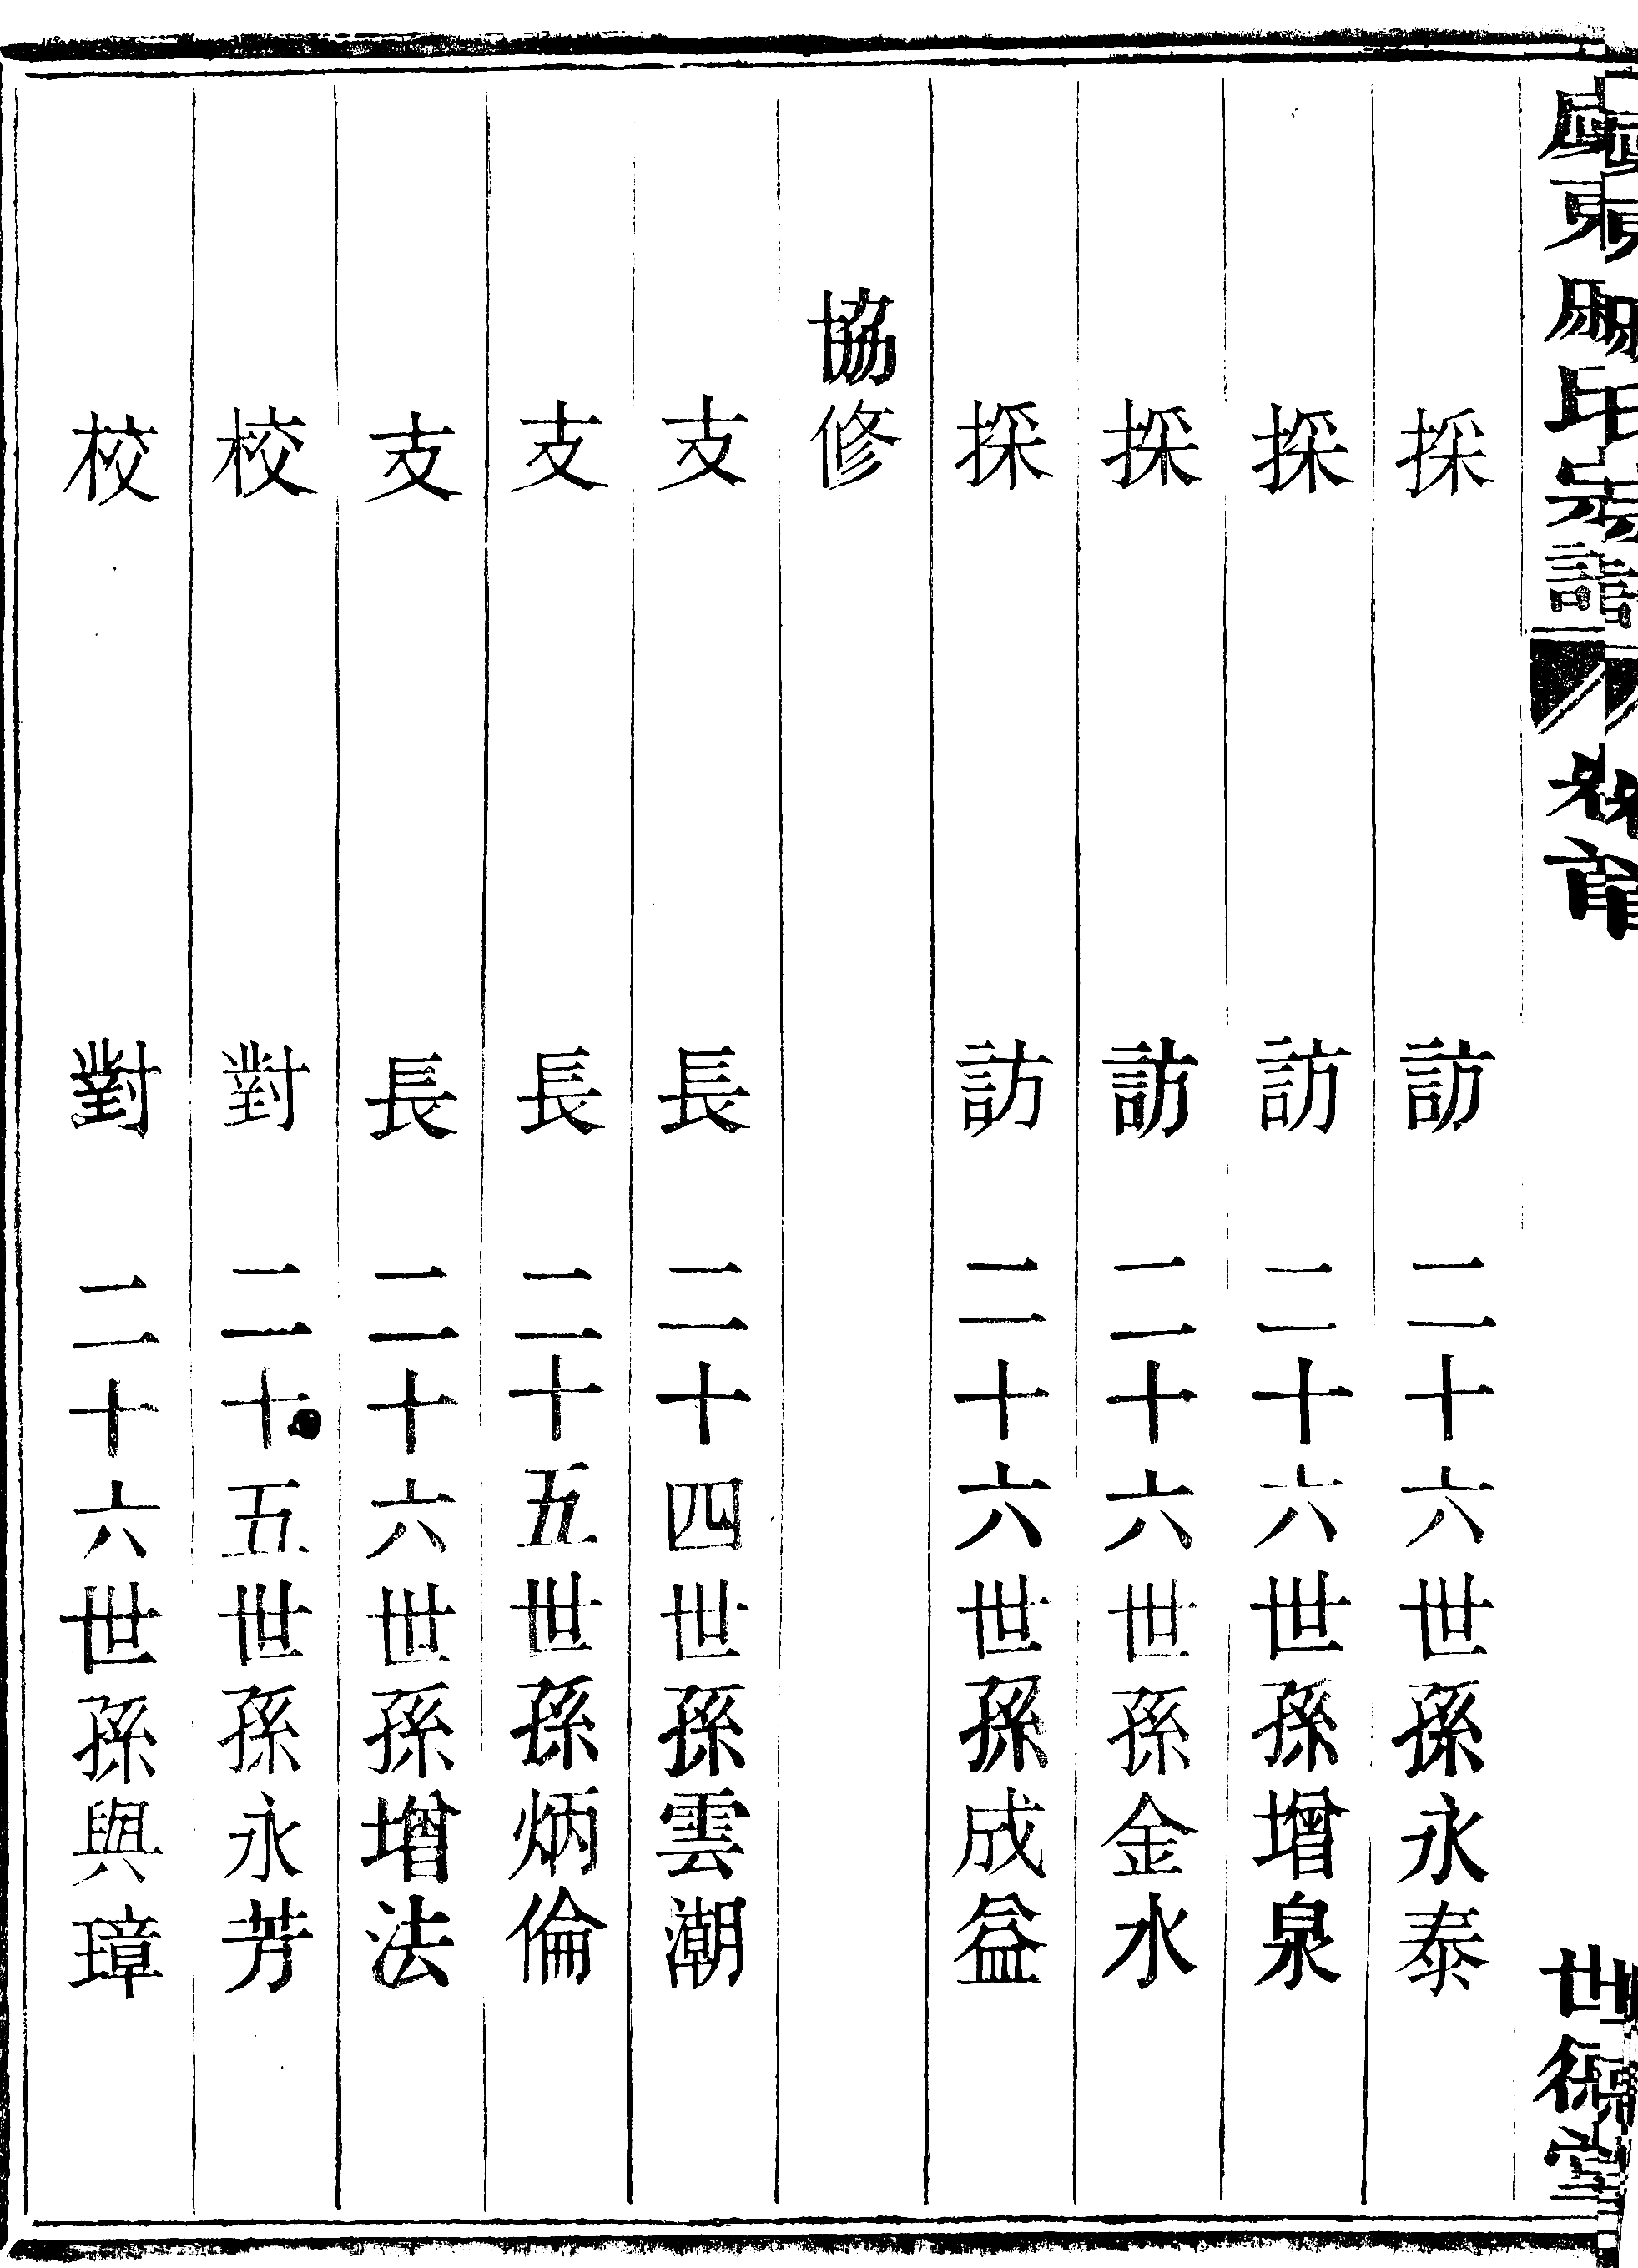 氏宗譜 卷首 世德堂
採訪 二十六世孫永泰
採訪 二十六世孫增泉
採訪 二十六世孫金水
採訪 二十六世孫成益
協修
支長 二十四世孫雲潮
支長 二十五世孫炳倫
支長 二十六世孫增法
校對 二十五世孫永芳
校對 二十六世孫與璋